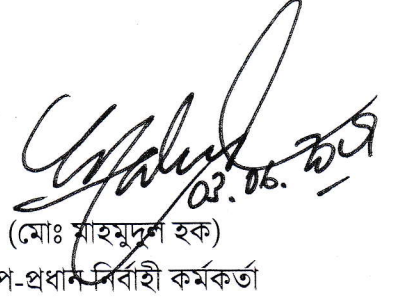 03.06.
(মোঃ মাহমুদুল হক)
প-প্রধান নির্বাহী কর্মকর্তা